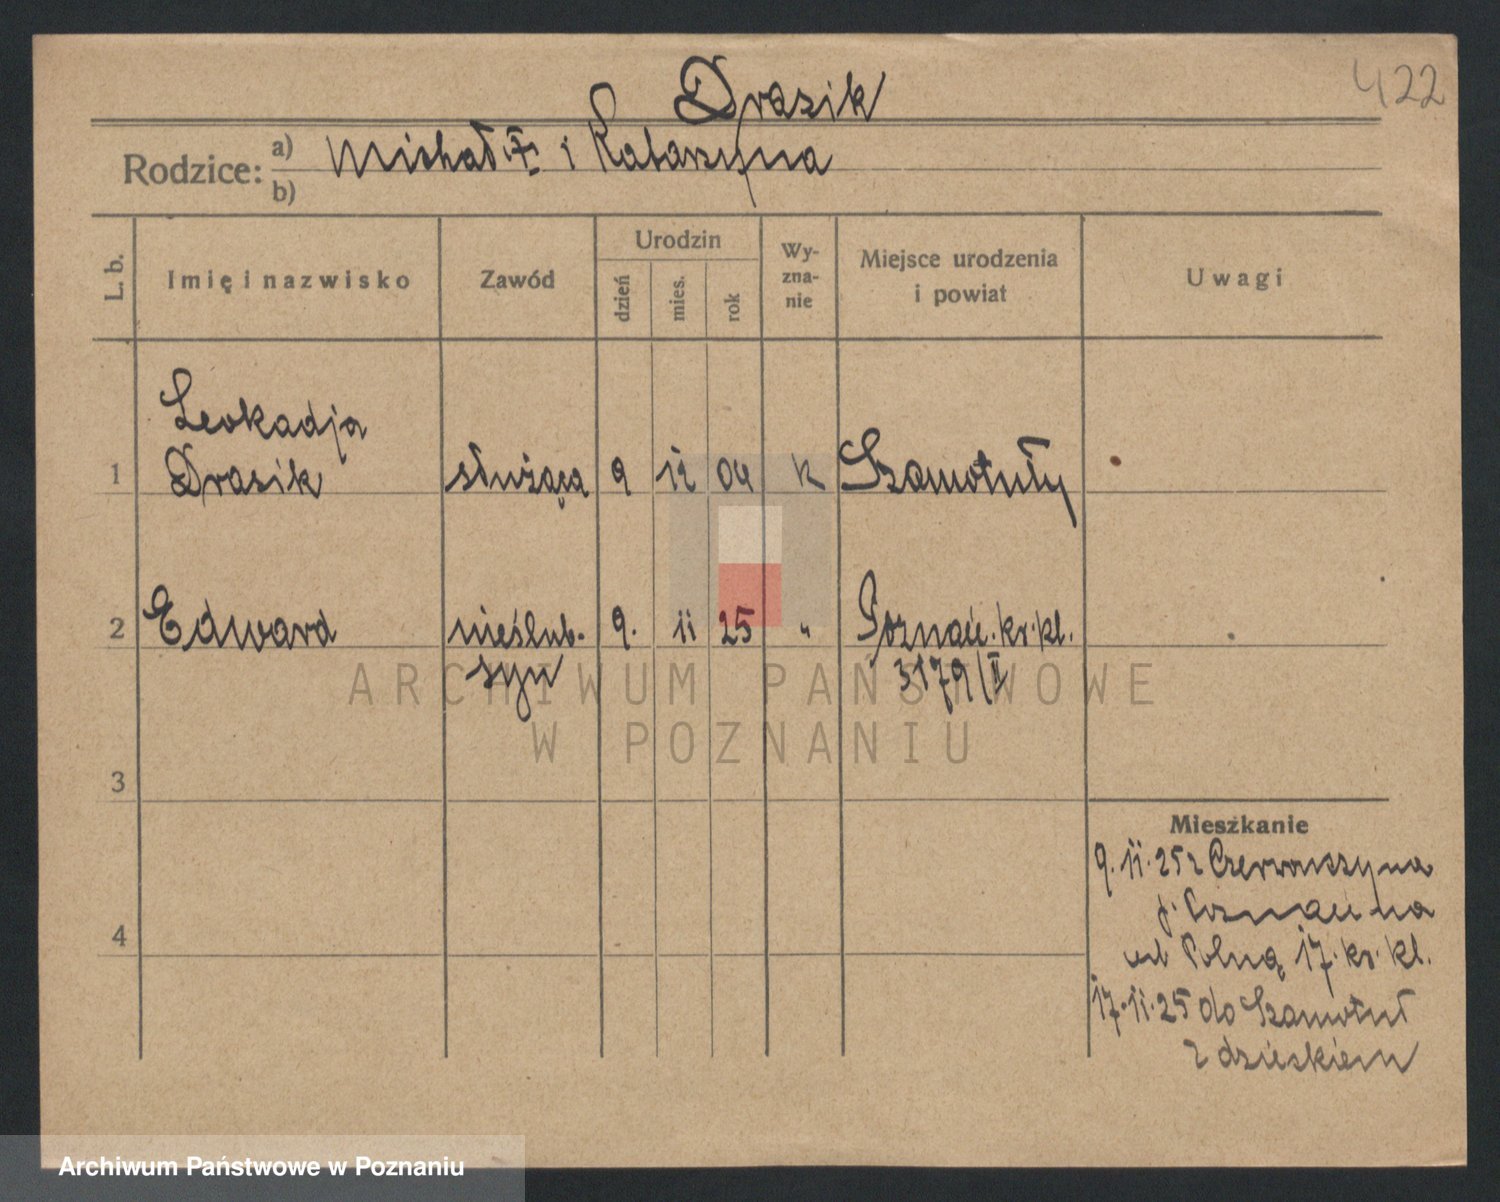 422
Drasik
Rodzice: a) Michał i Katarzyna
b)
L. b.
Imię i nazwisko
Zawód
Urodzin
dzień
mies.
rok
Wy-
zna-
nie
Miejsce urodzenia
i powiat
Uwagi
Leokadja
1 Drasik służąca 9 12 04 k Szamotuły
2 Edward nieślub. 9. 11 25 " Poznań. kr. kl.
syn 3179/II
3
4
Mieszkanie
9. 11. 25 z
p. Poznań na
Polną 17. kr. kl.
17. 11. 25 do Szamotuł
z dzieckiem
ARCHIWUM PAŃSTWOWE
W POZNANIU
Archiwum Państwowe w Poznaniu